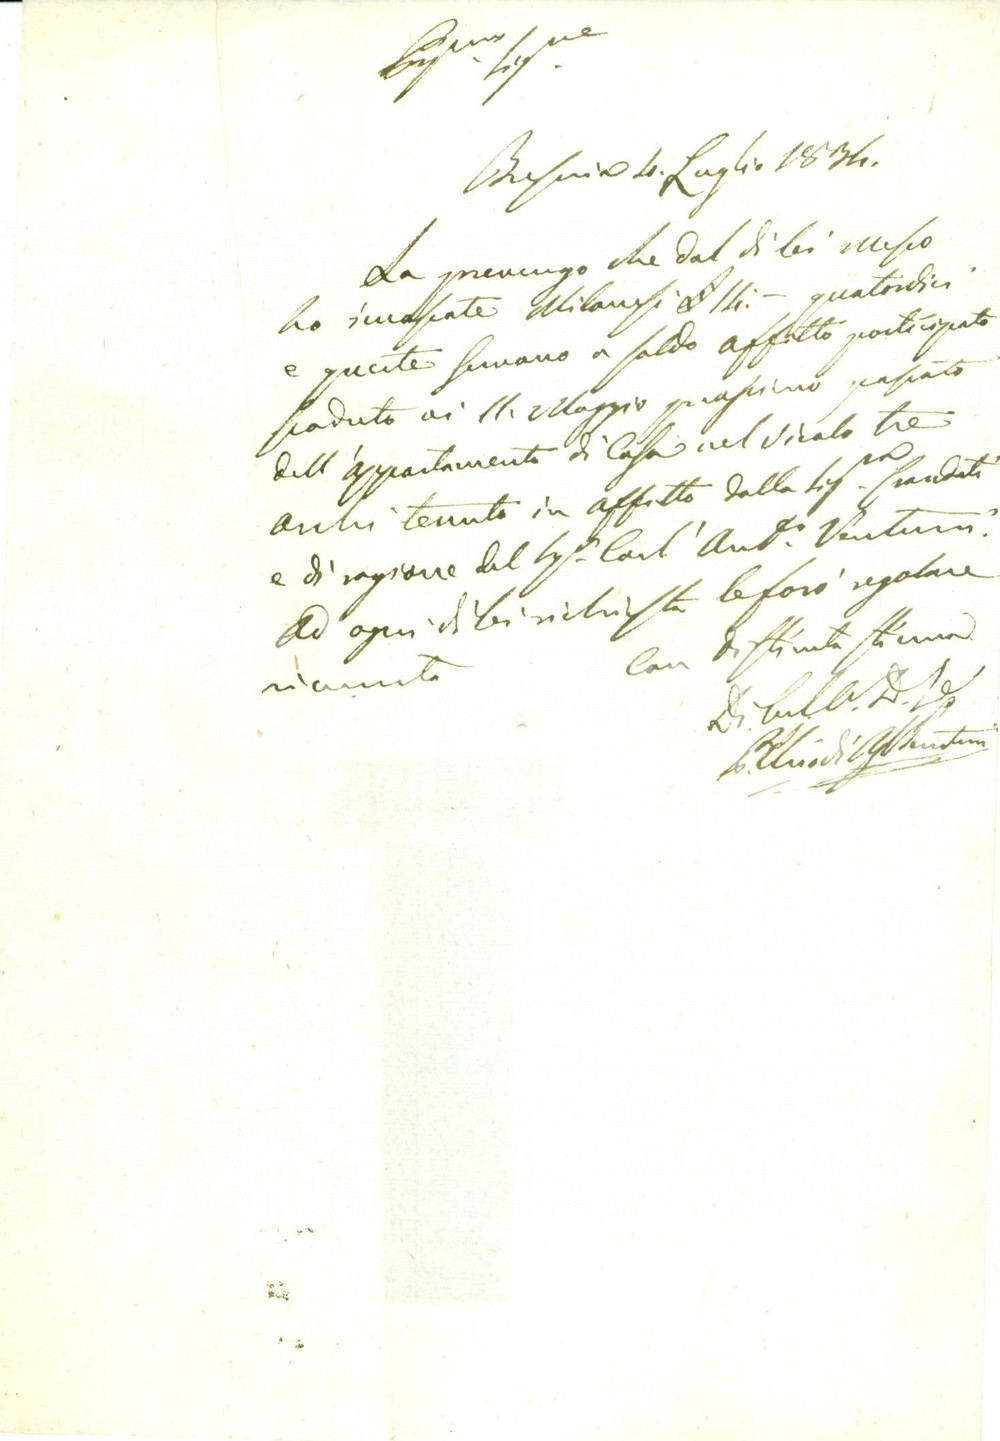 Sig.re
Brescia 4. Luglio 1834.
La prevengo che dal di lei messo
ho incassate Milanesi £ 14.- quatordici
e queste servano a saldo affitto posticipato
scaduto ai 11. Maggio prossimo passato
dell'appartamento di Casa nel vicolo tre
archi tenuto in affitto dalla Sig.ra
e di ragione del Sig.r Carl' Ant.o Venturini.
Ad ogni di lei richiesta le farò regolare
ricevuta Con distinta stima
Di